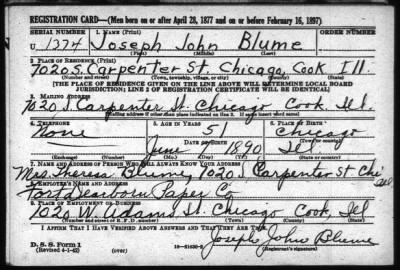 REGISTRATION CARD—(Men born on or after April 28, 1877 and on or before February 16, 1897)
SERIAL NUMBER 1. NAME (Print) ORDER NUMBER
U 1374 Joseph John Blume
(First) (Middle) (Last)
2. PLACE OF RESIDENCE (Print)
7020 S. Carpenter St. Chicago, Cook Ill.
(Number and street) (Town, township, village, or city) (County) (State)
[THE PLACE OF RESIDENCE GIVEN ON THE LINE ABOVE WILL DETERMINE LOCAL BOARD
JURISDICTION; LINE 2 OF REGISTRATION CERTIFICATE WILL BE IDENTICAL]
3. MAILING ADDRESS
7020 S. Carpenter St. Chicago Cook, Ill.
[Mailing address if other than place indicated on line 2. If same insert word same]
4. TELEPHONE 5. AGE IN YEARS 6. PLACE OF BIRTH
None 51 Chicago
DATE OF BIRTH (Town or county)
June 1890 Ill.
(Exchange) (Number) (Mo.) (Day) (Yr.) (State or country)
7. NAME AND ADDRESS OF PERSON WHO WILL ALWAYS KNOW YOUR ADDRESS
Mrs. Theresa Blume, 7020 S. Carpenter St. Chi Ill
8. EMPLOYER'S NAME AND ADDRESS
Fort Dearborn Paper Co
9. PLACE OF EMPLOYMENT OR BUSINESS
1020 W. Adams St. Chicago Cook, Ill
(Number and street or R. F. D. number) (Town) (County) (State)
I AFFIRM THAT I HAVE VERIFIED ABOVE ANSWERS AND THAT THEY ARE TRUE.
D. S. S. Form 1
(Revised 4-1-42) 16—21630-2 Joseph John Blume
(Registrant's signature)